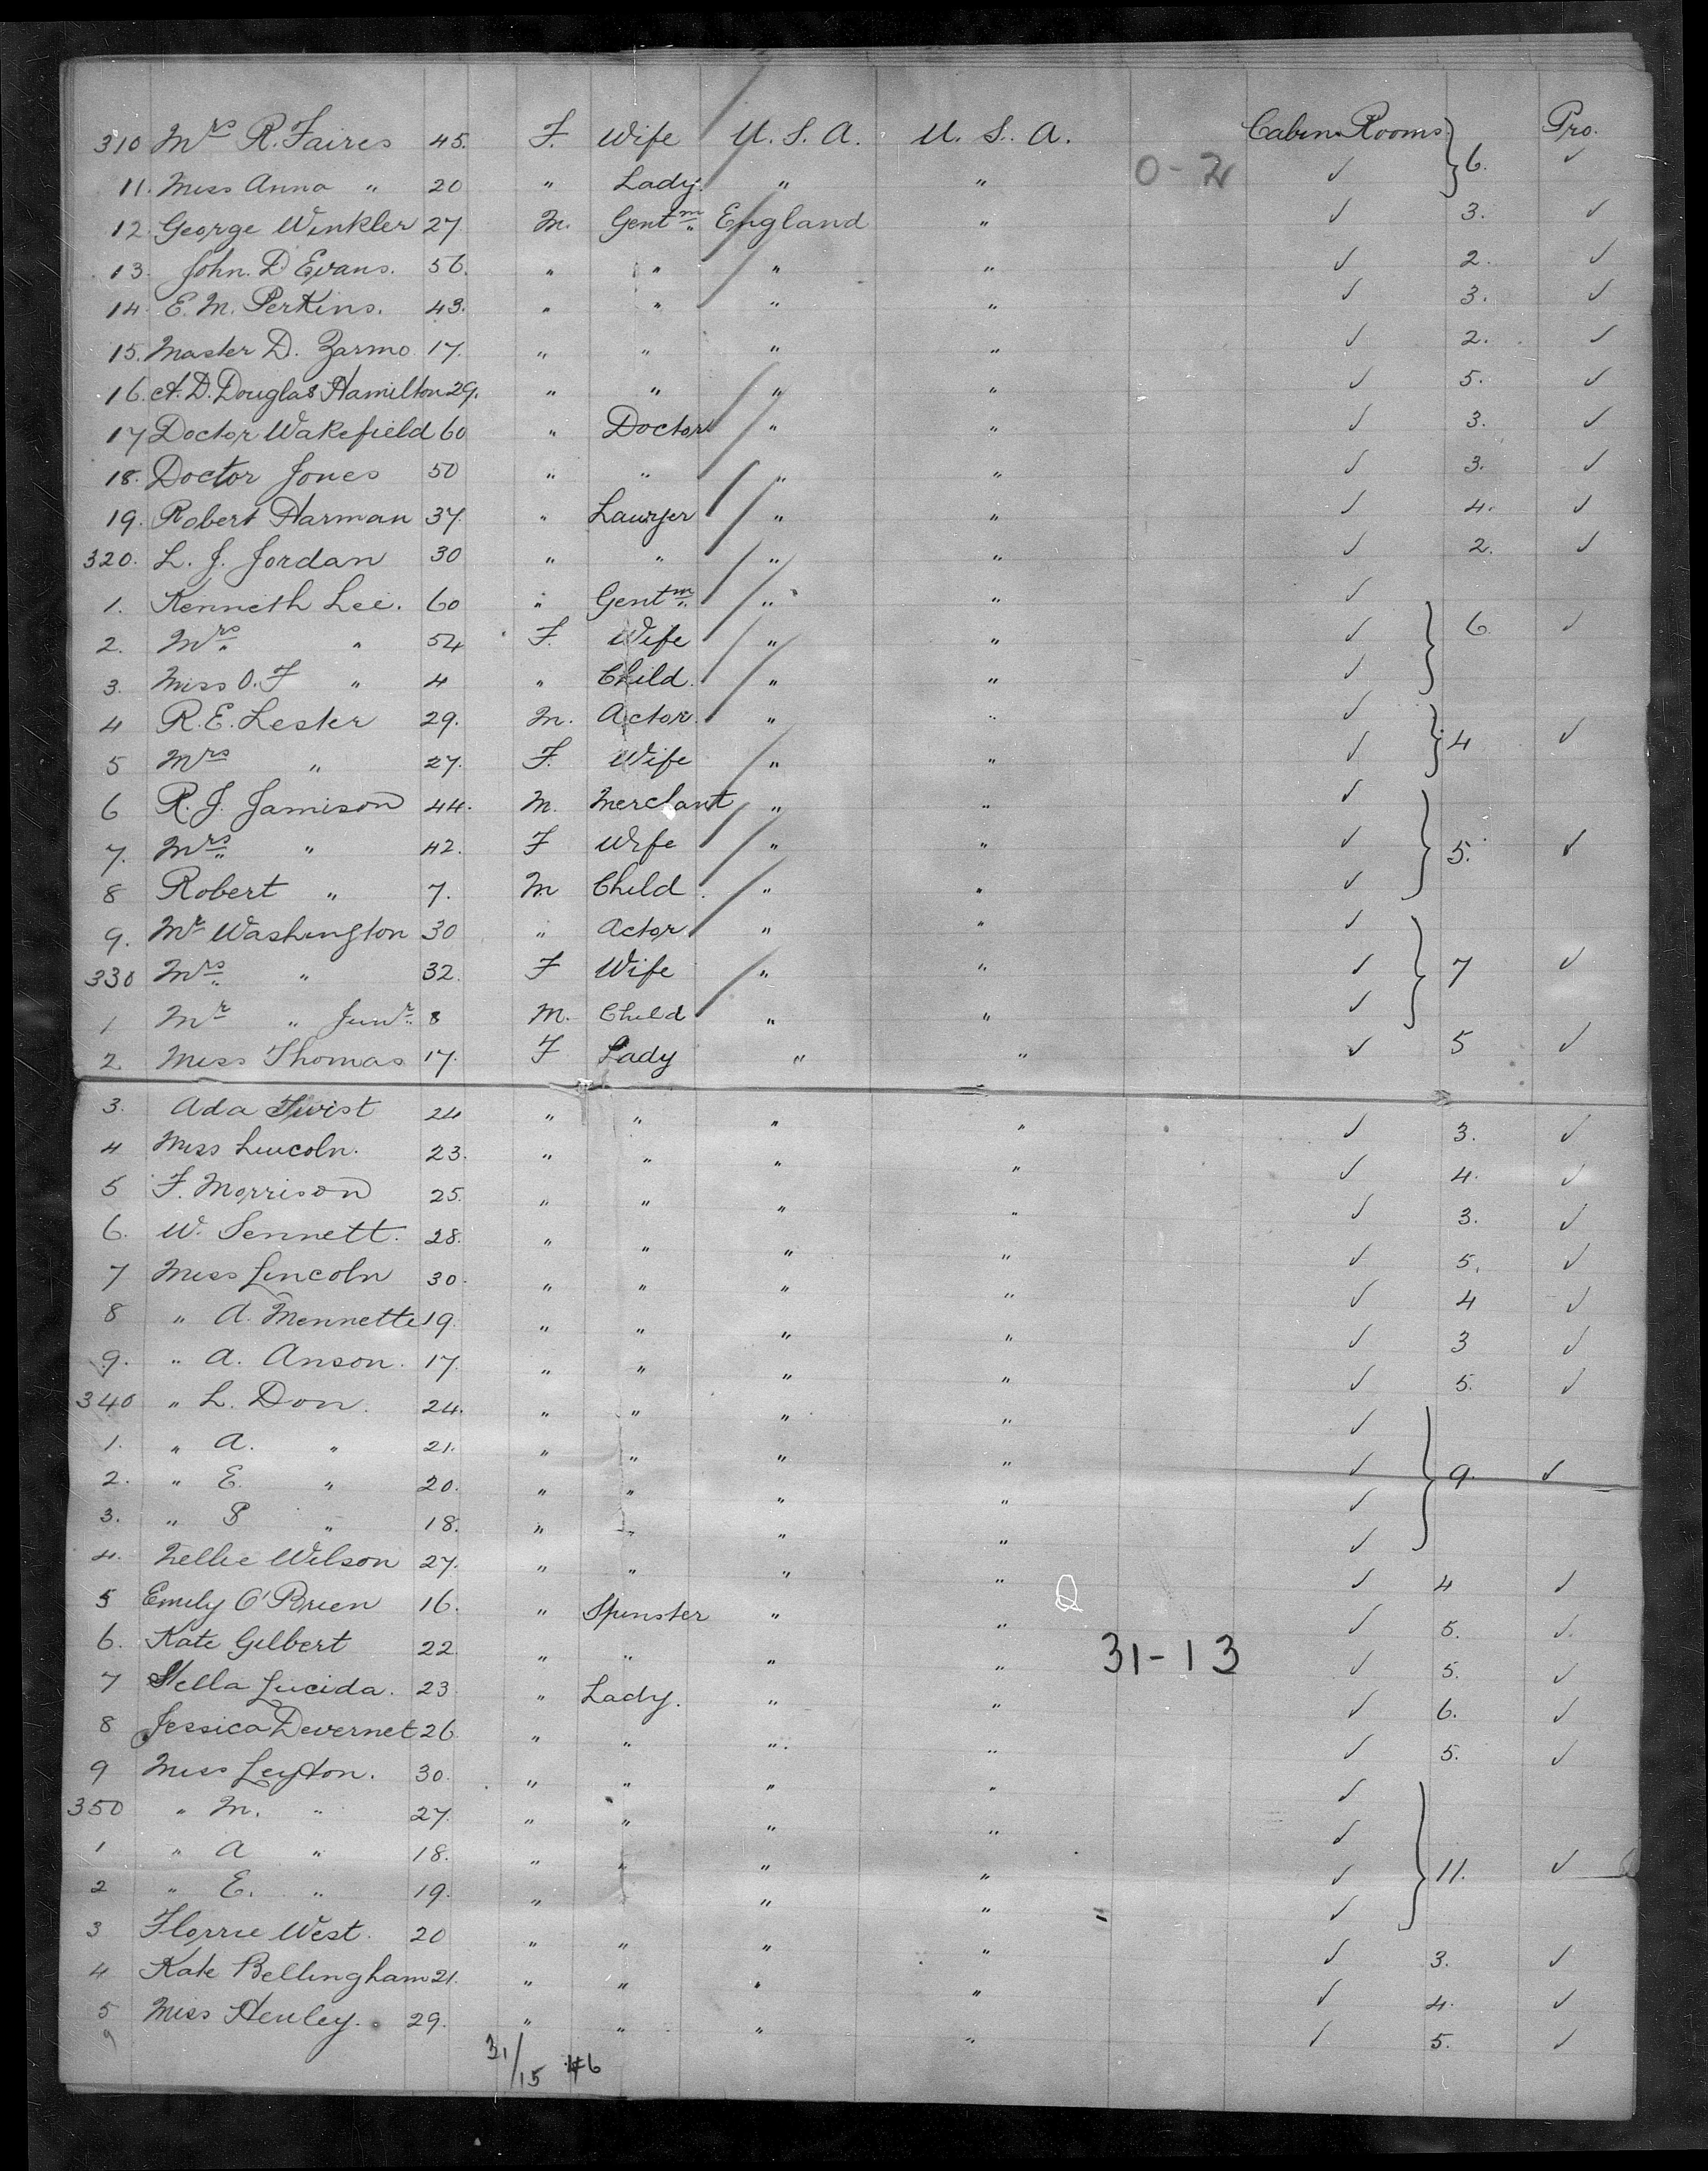 310 Mrs R. Faires 45. F. Wife U. S. A. U. S. A. Cabin Rooms } 6. Pro. ✓
11. Miss Anna " 20 " Lady. " " 0-2 ✓
12. George Winkler 27 M. Gentm England " ✓ 3. ✓
13. John. D Evans. 56. " " " " ✓ 2. ✓
14. E. M. Perkins. 43. " " " " ✓ 3. ✓
15. Master D. Zarmo 17. " " " " ✓ 2. ✓
16. A. D. Douglas Hamilton 29. " " " " ✓ 5. ✓
17 Doctor Wakefield 60 " Doctor " " ✓ 3. ✓
18. Doctor Jones 50 " " " " ✓ 3. ✓
19. Robert Harman 37. " Lawyer " " ✓ 4. ✓
320. L. J. Jordan 30 " " " " ✓ 2. ✓
1. Kenneth Lee. 60 " Gentm " " ✓
2. Mrs " 54 F. Wife " " ✓ } 6. ✓
3. Miss O. F " 4 " Child. " " ✓
4 R. E. Lester 29. M. Actor. " " ✓
5 Mrs " 27. F. Wife " " ✓ } 4 ✓
6 R. J. Jamison 44. M. Merchant " " ✓
7. Mrs " 42. F Wife " " ✓ } 5. ✓
8 Robert " 7. M Child. " " ✓
9. Mr Washington 30 " Actor " " ✓
330 Mrs " 32. F Wife " " ✓ } 7 ✓
1 Mr " Junr 8 M. Child " " ✓
2. Miss Thomas 17. F Lady " " ✓ 5 ✓
3. Ada Twist 24 " " " " ✓ 3. ✓
4 Miss Lincoln. 23. " " " " ✓ 4. ✓
5 F. Morrison 25. " " " " ✓ 3. ✓
6. W. Sennett. 28. " " " " ✓ 5. ✓
7 Miss Lincoln 30. " " " " ✓ 4 ✓
8 " A. Mennette 19. " " " " ✓ 3 ✓
9. " A. Anson. 17. " " " " ✓ 5. ✓
340 " L. Don. 24. " " " " ✓
1. " A. " 21. " " " " ✓ } 9. ✓
2. " E " 20. " " " " ✓
3. " S " 18. " " " " ✓
4. Nellie Wilson 27. " " " " ✓ 4 ✓
5 Emily O'Brien 16. " Spinster " " ✓ 5. ✓
Q
6. Kate Gilbert 22. " " " " 31-13 ✓ 5. ✓
7 Stella Lucida. 23. " Lady. " " ✓ 6. ✓
8 Jessica Devernet 26 " " " " ✓ 5. ✓
9 Miss Leyton. 30. " " " " ✓
350 " M. " 27. " " " " ✓
1 " A " 18. " " " " ✓ } 11. ✓
2 " E. " 19. " " " " ✓
3 Florrie West. 20 " " " " ✓ 3. ✓
4 Kate Bellingham 21. " " " " ✓ 4. ✓
5 Miss Henley. 29. " " " " ✓ 5. ✓
9
31/15 46